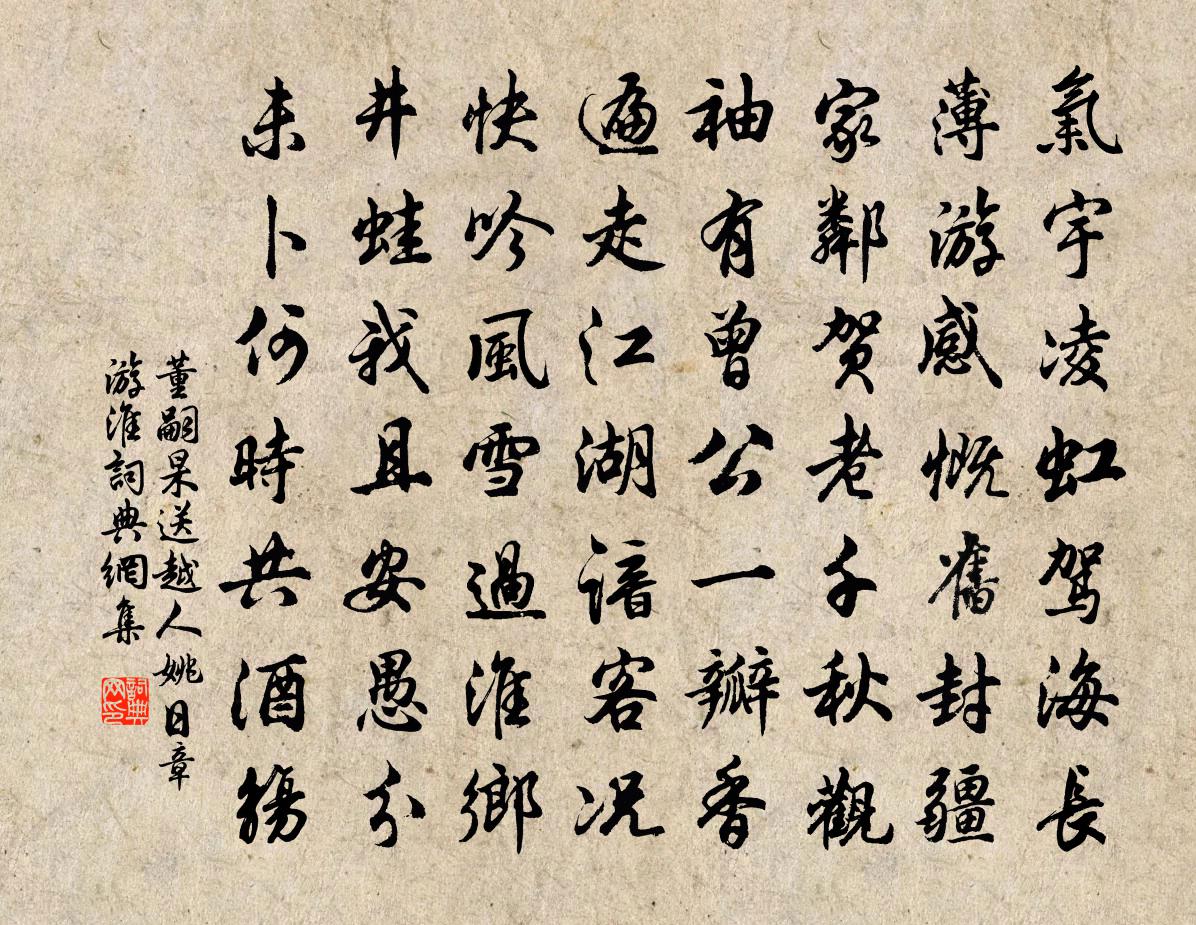 氣宇凌虹駕海長
薄游感慨舊封疆
家鄰賀老千秋觀
袖有曾公一瓣香
遍走江湖諳客况
快吟風雪過淮鄉
井蛙我且安愚分
未卜何時共酒觴
董嗣杲送越人姚日章
游淮詞典網集
詞典網印